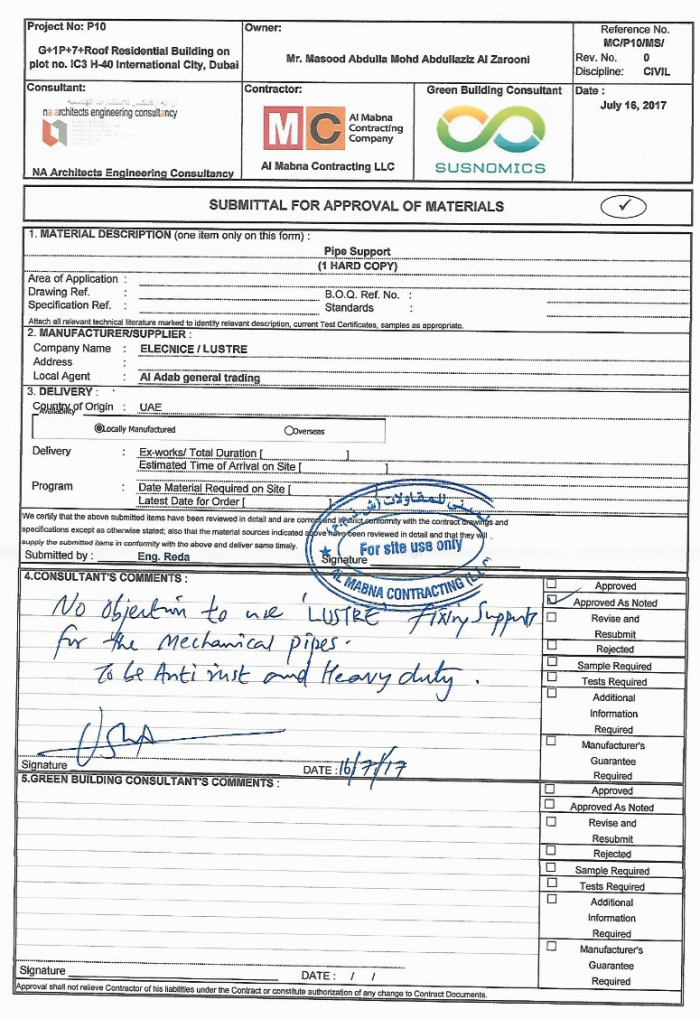 Project No: P10
G+1P+7+Roof Residential Building on
plot no. IC3 H-40 International City, Dubai
Owner:
Mr. Masood Abdulla Mohd Abdullaziz Al Zarooni
Reference No.
MC/P10/MS/
Rev. No. 0
Discipline: CIVIL
Consultant:
na architects engineering consultancy
NA Architects Engineering Consultancy
Contractor:
MC
Al Mabna
Contracting
Company
Al Mabna Contracting LLC
Green Building Consultant
SUSNOMICS
Date :
July 16, 2017
SUBMITTAL FOR APPROVAL OF MATERIALS ✓
1. MATERIAL DESCRIPTION (one item only on this form) :
Pipe Support
(1 HARD COPY)
Area of Application :
Drawing Ref. : B.O.Q. Ref. No. :
Specification Ref. : Standards :
Attach all relevant technical literature marked to identify relevant description, current Test Certificates, samples as appropriate.
2. MANUFACTURER/SUPPLIER :
Company Name : ELECNICE / LUSTRE
Address :
Local Agent : Al Adab general trading
3. DELIVERY :
Country of Origin : UAE
Availability
Locally Manufactured Overseas
Delivery : Ex-works/ Total Duration [ ]
Estimated Time of Arrival on Site [ ]
Program : Date Material Required on Site [ ]
Latest Date for Order [ ]
We certify that the above submitted items have been reviewed in detail and are correct and in strict conformity with the contract drawings and
specifications except as otherwise stated; also that the material sources indicated above have been reviewed in detail and that they will
supply the submitted items in conformity with the above and deliver same timely.
Submitted by : Eng. Reda Signature
للمقاولات
For site use only
AL MABNA CONTRACTING (L.L.C
4.CONSULTANT'S COMMENTS :
No objection to use 'LUSTRE' Fixing Supports
for the Mechanical pipes.
To be Anti rust and Heavy duty.
Signature DATE : 16/7/17
Approved
Approved As Noted
Revise and
Resubmit
Rejected
Sample Required
Tests Required
Additional
Information
Required
Manufacturer's
Guarantee
Required
5.GREEN BUILDING CONSULTANT'S COMMENTS :
Approved
Approved As Noted
Revise and
Resubmit
Rejected
Sample Required
Tests Required
Additional
Information
Required
Manufacturer's
Guarantee
Required
Signature DATE : / /
Approval shall not relieve Contractor of his liabilities under the Contract or constitute authorization of any change to Contract Documents.